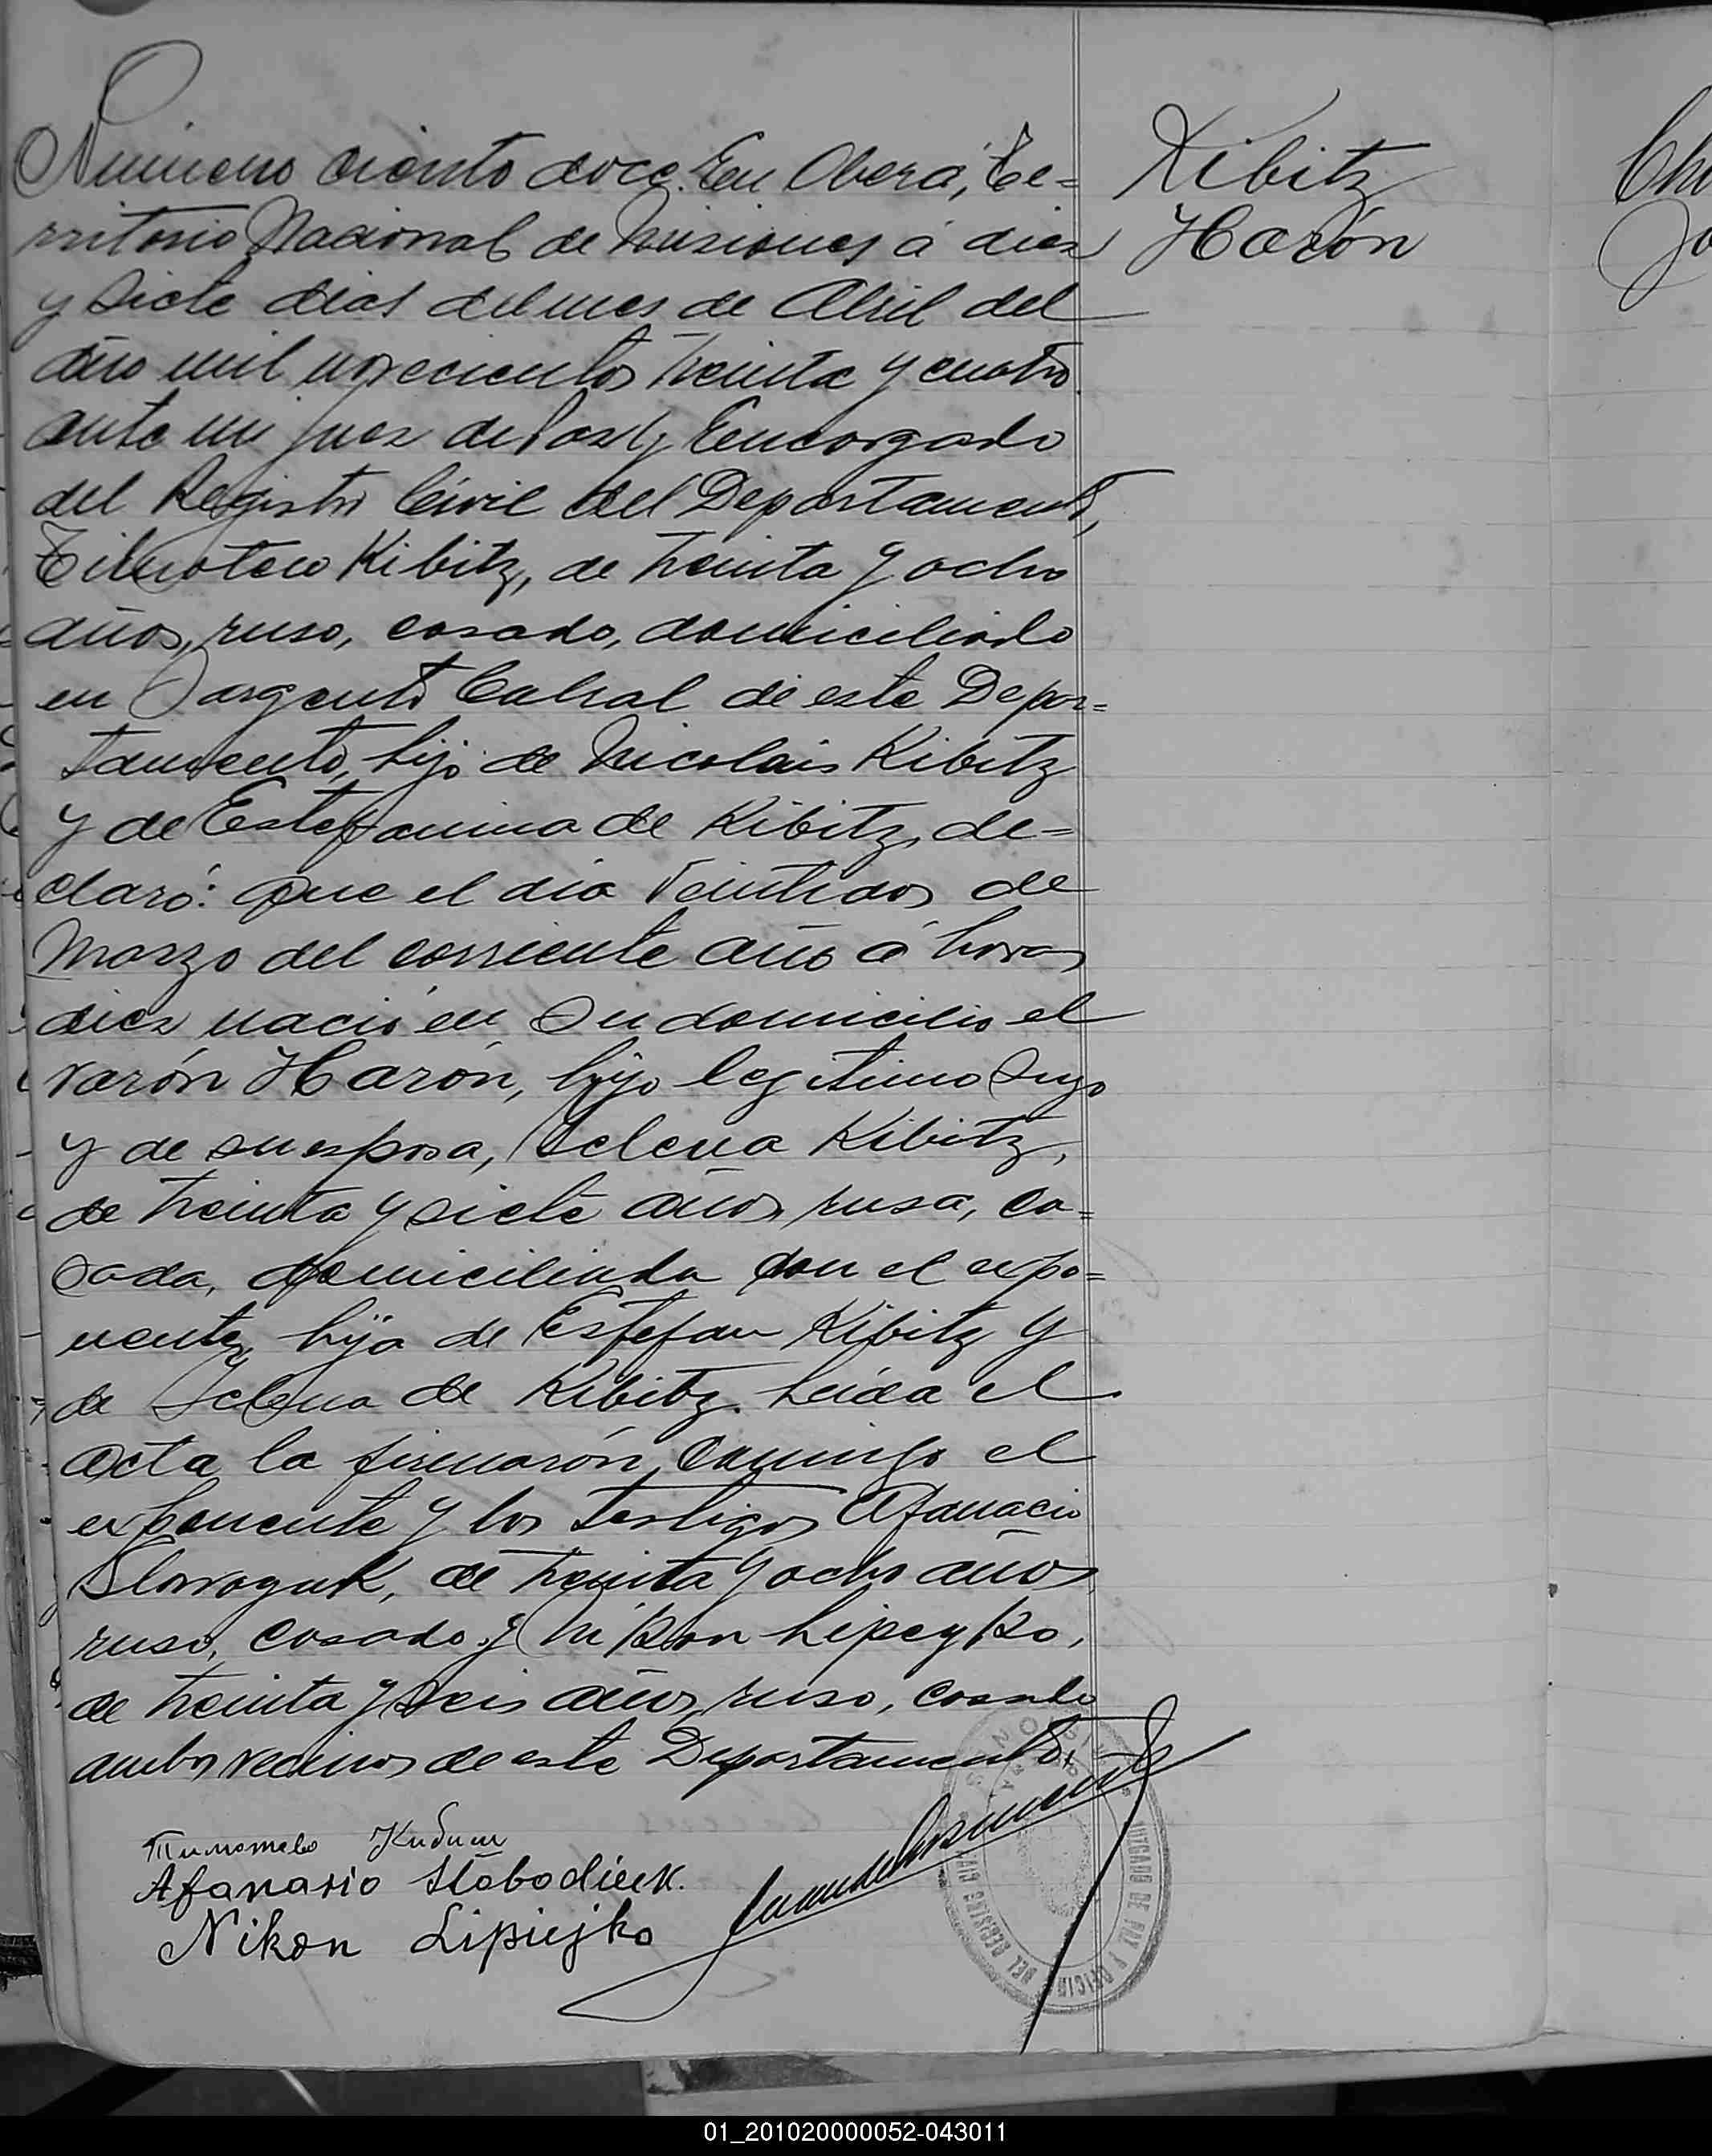 Número ciento doce. En Oberá, Te=
rritorio Nacional de Misiones á diez
y siete dias del mes de Abril del
año mil novecientos treinta y cuatro
ante mi juez de Paz y Encargado
del Registro Civil del Departamento,
Timoteo Kibitz, de treinta y ocho
años, ruso, casado, domiciliado
en Sargento Cabral de este Depar=
tamento, hijo de Nicolais Kibitz
y de Estefanina de Kibitz, de=
claró: que el dia veintidos de
Marzo del corriente año á horas
diez nació en su domicilio el
varón Harón, hijo legitimo suyo
y de su esposa, Selena Kibitz,
de treinta y siete años, rusa, ca=
sada, domiciliada con el expo=
nente, hija de Estefan Kibitz y
de Selena de Kibitz. Leida el
acta la firmarón conmigo el
exponente y los testigos Afanacio
de treinta y ocho años
ruso, casado y Nikon Lipeyko,
de treinta y seis años, ruso, casado
ambos vecinos de este Departamento.
Тимотево Кибиц
Afanasio Slobodiuk.
Nikon Lipiejko
Kibitz
Harón
Che
Jo
JUZGADO DE PAZ Y OFICINA DEL REGISTRO CIVIL
MISIONES
01_201020000052-043011